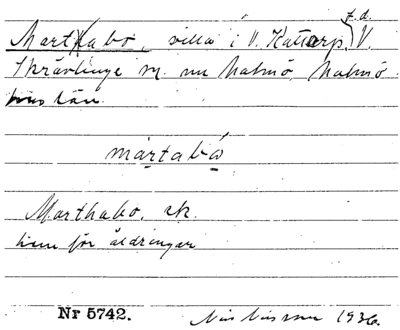 f.d.
Marthabo, villa i V. Kattarp, V.
Skrävlinge sn. nu Malmö, Malmö-
hus län.
mártabò
Marthabo, ek.
hem för åldringar
Nr 5742.
1936.